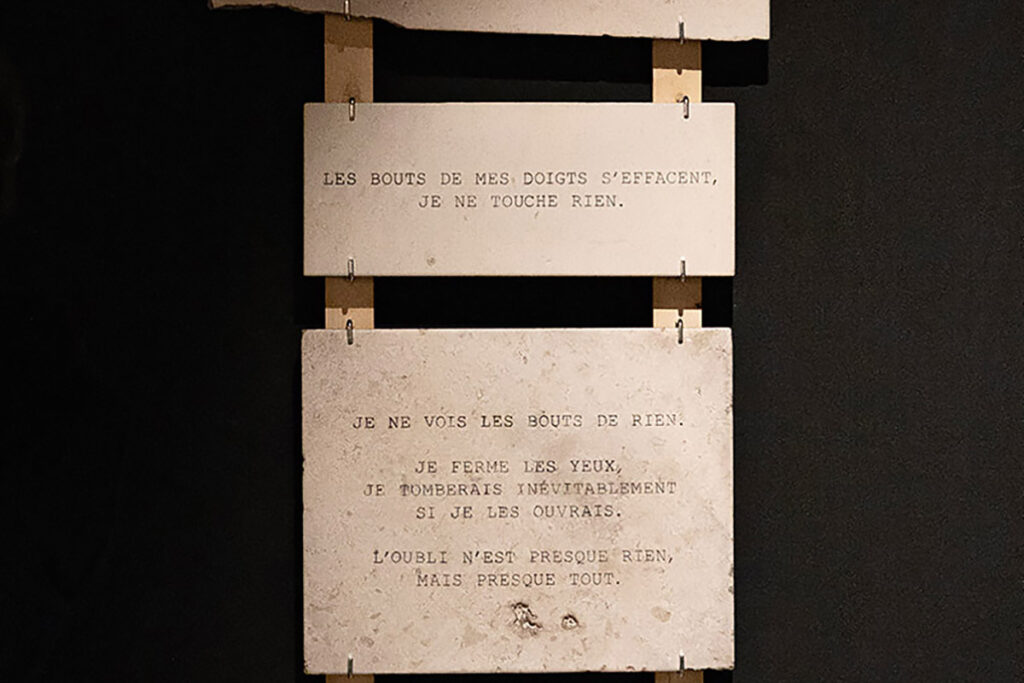 LES BOUTS DE MES DOIGTS S'EFFACENT,
JE NE TOUCHE RIEN.
JE NE VOIS LES BOUTS DE RIEN.
JE FERME LES YEUX,
JE TOMBERAIS INÉVITABLEMENT
SI JE LES OUVRAIS.
L'OUBLI N'EST PRESQUE RIEN,
MAIS PRESQUE TOUT.